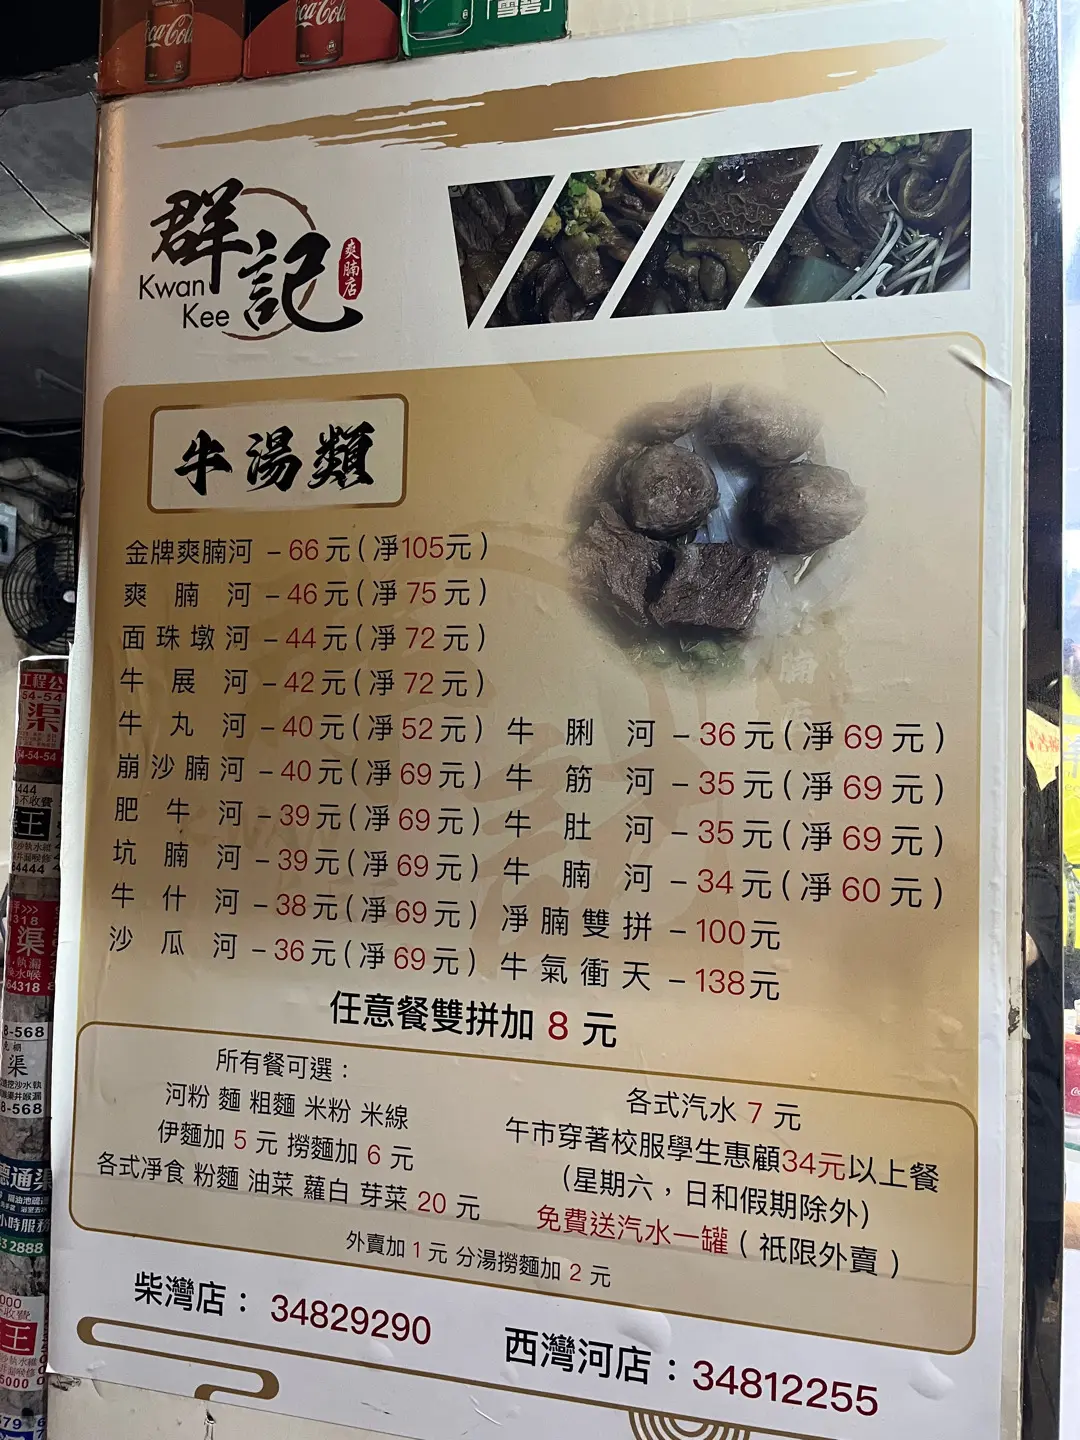 Coca-Cola
「雪碧」
群記
Kwan
Kee
爽腩店
牛湯類
金牌爽腩河 – 66元(凈105元)
爽腩河 – 46元(凈75元)
面珠墩河 – 44元(凈72元)
牛展河 – 42元(凈72元)
牛丸河 – 40元(凈52元)
崩沙腩河 – 40元(凈69元)
肥牛河 – 39元(凈69元)
坑腩河 – 39元(凈69元)
牛什河 – 38元(凈69元)
沙瓜河 – 36元(凈69元)
牛脷河 – 36元(凈69元)
牛筋河 – 35元(凈69元)
牛肚河 – 35元(凈69元)
牛腩河 – 34元(凈60元)
凈腩雙拼 – 100元
牛氣衝天 – 138元
任意餐雙拼加 8 元
所有餐可選：
河粉 麵 粗麵 米粉 米線
伊麵加 5 元 撈麵加 6 元
各式凈食 粉麵 油菜 蘿白 芽菜 20 元
各式汽水 7 元
午市穿著校服學生惠顧34元以上餐
(星期六，日和假期除外)
免費送汽水一罐 ( 祇限外賣 )
外賣加 1 元 分湯撈麵加 2 元
柴灣店： 34829290
西灣河店：34812255